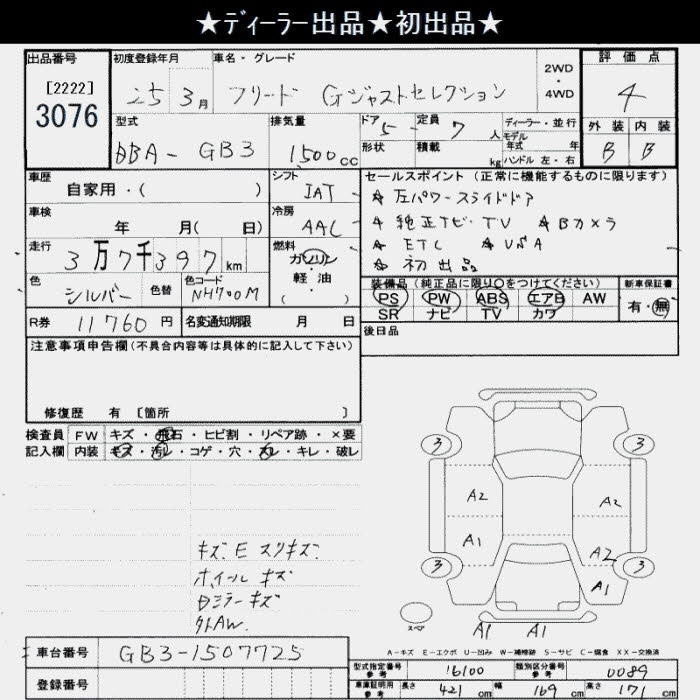 ★ディーラー出品★初出品★
出品番号 初度登録年月 車名・グレード 2WD・4WD 評価点
[2222]
3076 25 3月 フリード Gジャストセレクション 4
型式 排気量 ドア 5 定員 7人 ディーラー・並行 外装 内装
DBA-GB3 1500cc 形状 積載 kg モデル年式 年 ハンドル 左・右 B B
車歴 自家用・( ) シフト IAT
セールスポイント(正常に機能するものに限ります)
★左パワースライドドア
車検 年 月( 日) 冷房 AAC
★純正ナビ・TV ★Bカメラ
走行 3万7千397km 燃料 ガソリン・軽油
★ETC ★VSA
★初出品
色 シルバー 色替 色コード NH700M ( ・ )
装備品(純正品に限り○をつけてください) 新車保証書
PS PW ABS エアB AW 有・無
SR ナビ TV カワ
R券 11760円 名変通知期限 月 日
後日品
注意事項申告欄(不具合内容等は具体的に記入して下さい)
修復歴 有 [箇所 ]
検査員 FW キズ・飛石・ヒビ割・リペア跡・×要
記入欄 内装 キズ・汚レ・コゲ・穴・スレ・キレ・破レ
3 3
A2 A2
A1 A2
3 3
A1
スペア
A1 A1
キズ、E スリキズ
ホイールキズ
Dミラーキズ
外AW
A-キズ E-エクボ U-凹み W-補修跡 S-サビ C-腐食 XX-交換済
車台番号 GB3-1507725
型式指定番号 参考 16100 類別区分番号 参考 0089
登録番号
車庫証明用 参考 長さ 421cm 幅 169cm 高さ 171cm